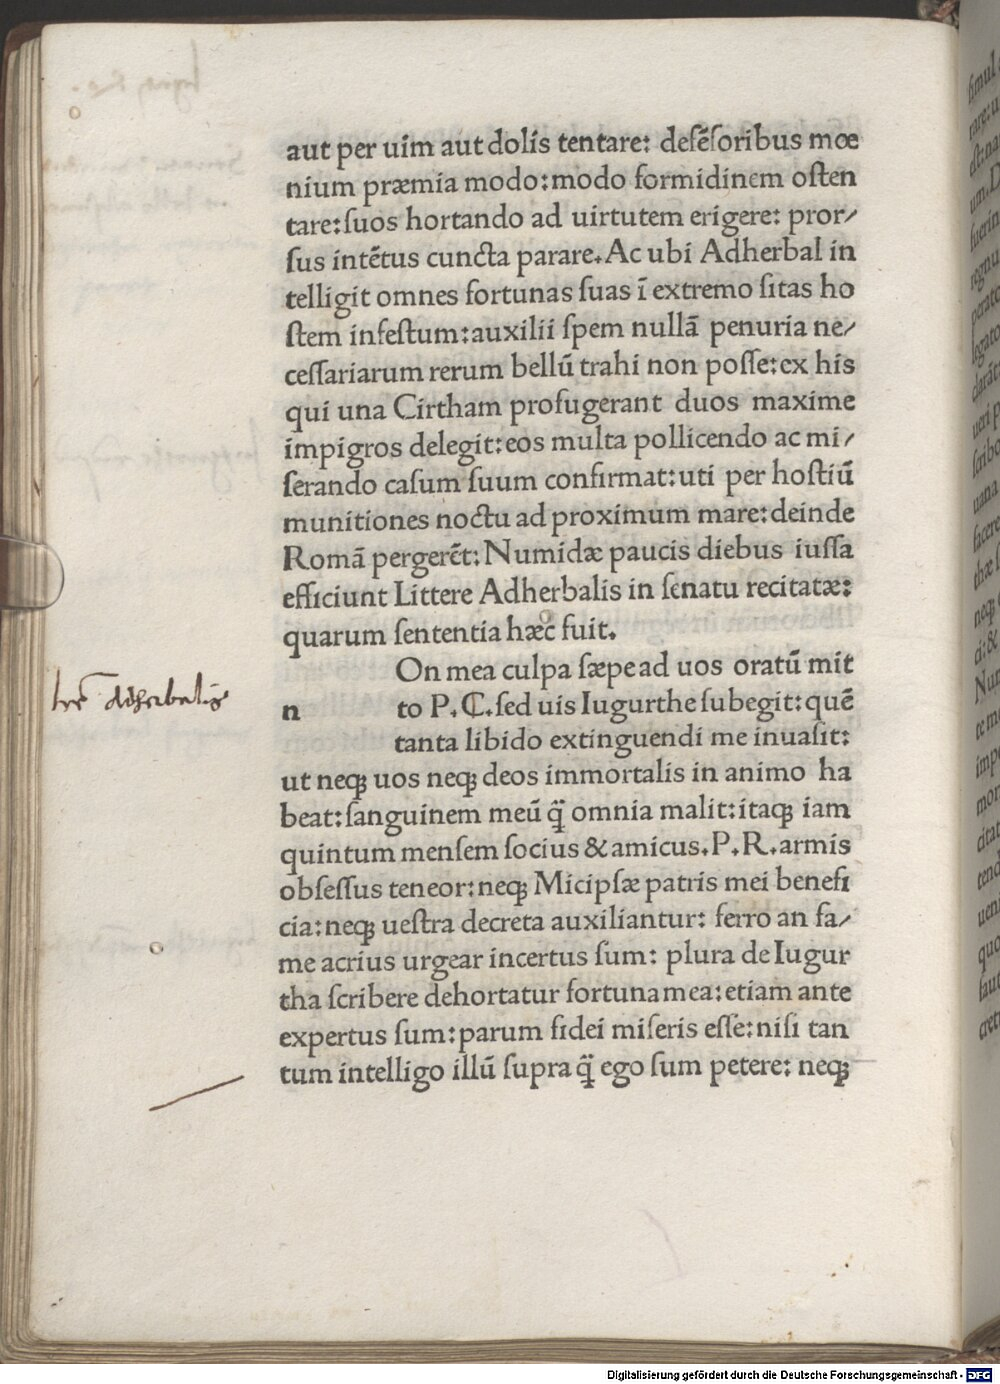 aut per uim aut dolis tentare: defẽſoribus mœ
nium præmia modo: modo formidinem oſten
tare: ſuos hortando ad uirtutem erigere: pror/
ſus intẽtus cuncta parare. Ac ubi Adherbal in
telligit omnes fortunas ſuas ĩ extremo ſitas ho
ſtem infeſtum: auxilii ſpem nullã penuria ne/
ceſſariarum rerum bellũ trahi non poſſe: ex his
qui una Cirtham profugerant duos maxime
impigros delegit: eos multa pollicendo ac mi/
ſerando caſum ſuum confirmat: uti per hoſtiũ
munitiones noctu ad proximum mare: deinde
Romã pergerẽt: Numidæ paucis diebus iuſſa
efficiunt Littere Adherbalis in ſenatu recitatæ:
quarum ſententia hæc fuit.
On mea culpa ſæpe ad uos oratũ mit
lrẽ adherbalis
n to P. C. ſed uis Iugurthe ſubegit: quẽ
tanta libido extinguendi me inuaſit:
ut neqꝫ uos neqꝫ deos immortalis in animo ha
beat: ſanguinem meũ q̃ omnia malit: itaqꝫ iam
quintum menſem ſocius & amicus. P. R. armis
obſeſſus teneor: neqꝫ Micipſæ patris mei benefi
cia: neqꝫ ueſtra decreta auxiliantur: ferro an fa/
me acrius urgear incertus ſum: plura de Iugur
tha ſcribere dehortatur fortuna mea: etiam ante
expertus ſum: parum fidei miſeris eſſe: niſi tan
tum intelligo illũ ſupra q̃ ego ſum petere: neqꝫ
Digitalisierung gefördert durch die Deutsche Forschungsgemeinschaft - DFG